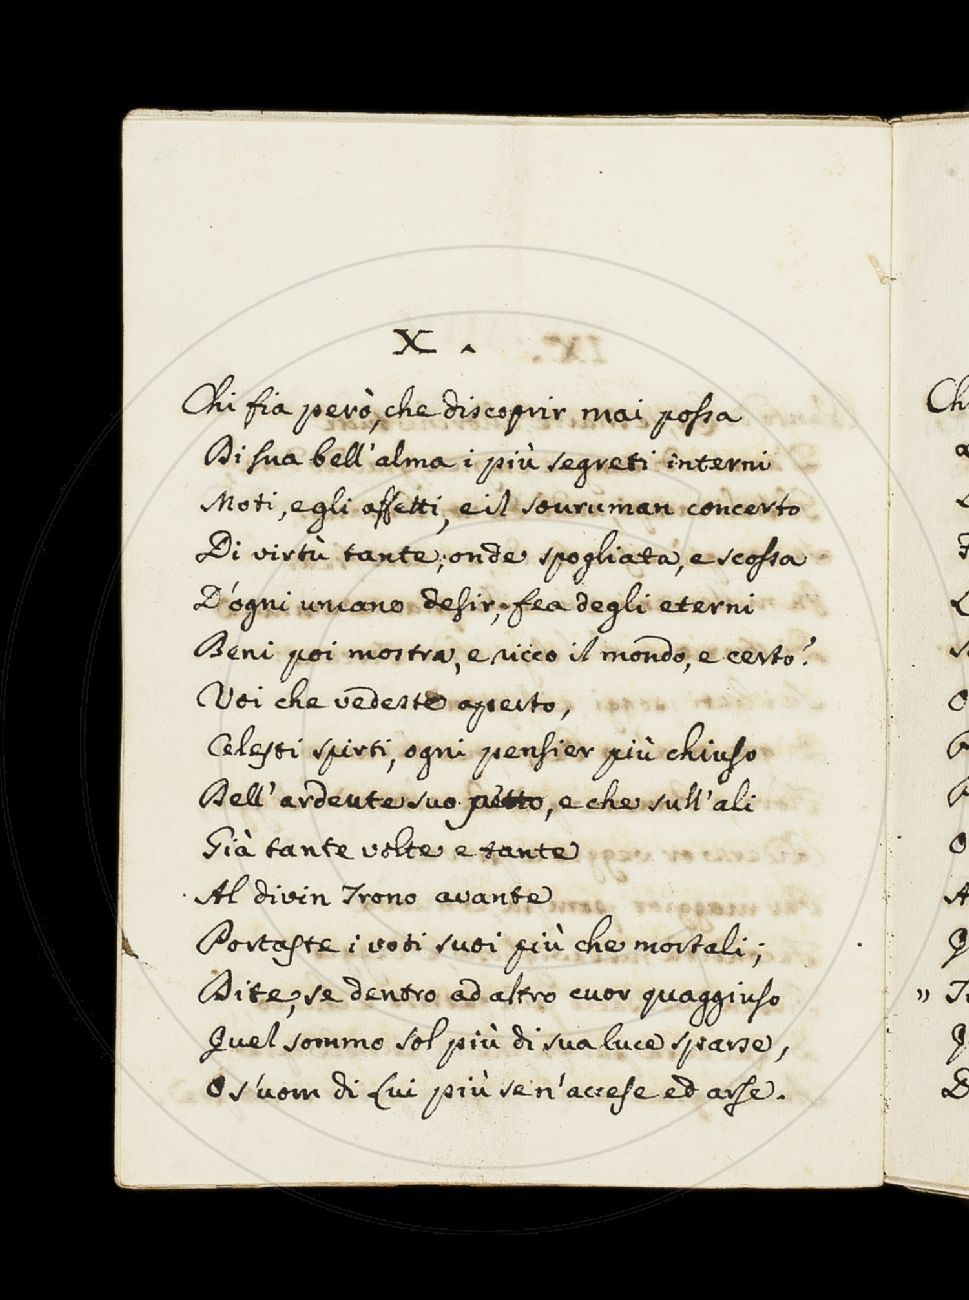 X.
Chi fia però, che discoprir mai possa
Di sua bell'alma i più segreti interni
Moti, e gli affetti, e il souruman concerto
Di virtù tante; onde spogliata, e scossa
D'ogni umano desir, fea degli eterni
Beni poi mostra, e ricco il mondo, e certo?
Voi che vedeste aperto,
Celesti spirti, ogni pensier più chiuso
Dell'ardente suo petto, e che sull'ali
Già tante volte e tante
Al divin Trono avante
Portaste i voti suoi più che mortali;
Dite, se dentro ad altro cuor quaggiuso
Quel sommo sol più di sua luce sparse,
O s'uom di Lui più se n'accese ed arse.